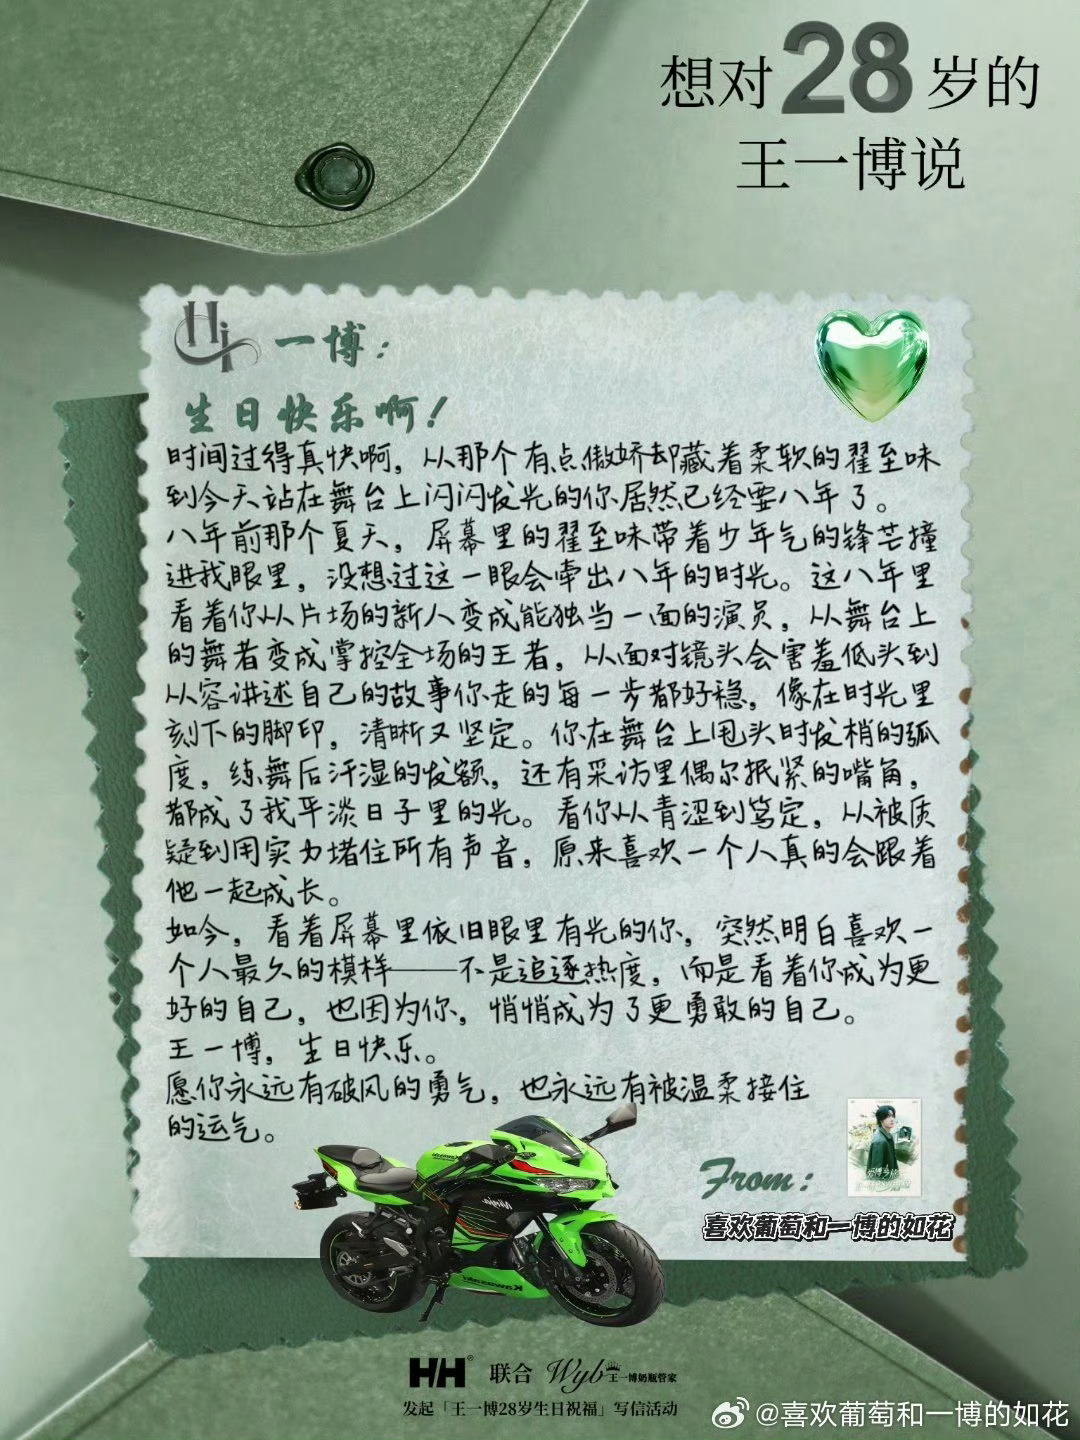 想对28岁的
王一博说
Hi 一博：
生日快乐啊！
时间过得真快啊，从那个有点傲娇却藏着柔软的翟至味
到今天站在舞台上闪闪发光的你居然已经要八年了。
八年前那个夏天，屏幕里的翟至味带着少年气的锋芒撞
进我眼里，没想过这一眼会牵出八年的时光。这八年里
看着你从片场的新人变成能独当一面的演员，从舞台上
的舞者变成掌控全场的王者，从面对镜头会害羞低头到
从容讲述自己的故事你走的每一步都好稳，像在时光里
刻下的脚印，清晰又坚定。你在舞台上甩头时发梢的弧
度，练舞后汗湿的发额，还有采访里偶尔抿紧的嘴角，
都成了我平淡日子里的光。看你从青涩到笃定，从被质
疑到用实力堵住所有声音，原来喜欢一个人真的会跟着
他一起成长。
如今，看着屏幕里依旧眼里有光的你，突然明白喜欢一
个人最久的模样——不是追逐热度，而是看着你成为更
好的自己，也因为你，悄悄成为了更勇敢的自己。
王一博，生日快乐。
愿你永远有破风的勇气，也永远有被温柔接住
的运气。
Ninja
Kawasaki
From：
喜欢葡萄和一博的如花
HH® 联合 Wyb 王一博奶瓶管家
发起「王一博28岁生日祝福」写信活动
@喜欢葡萄和一博的如花